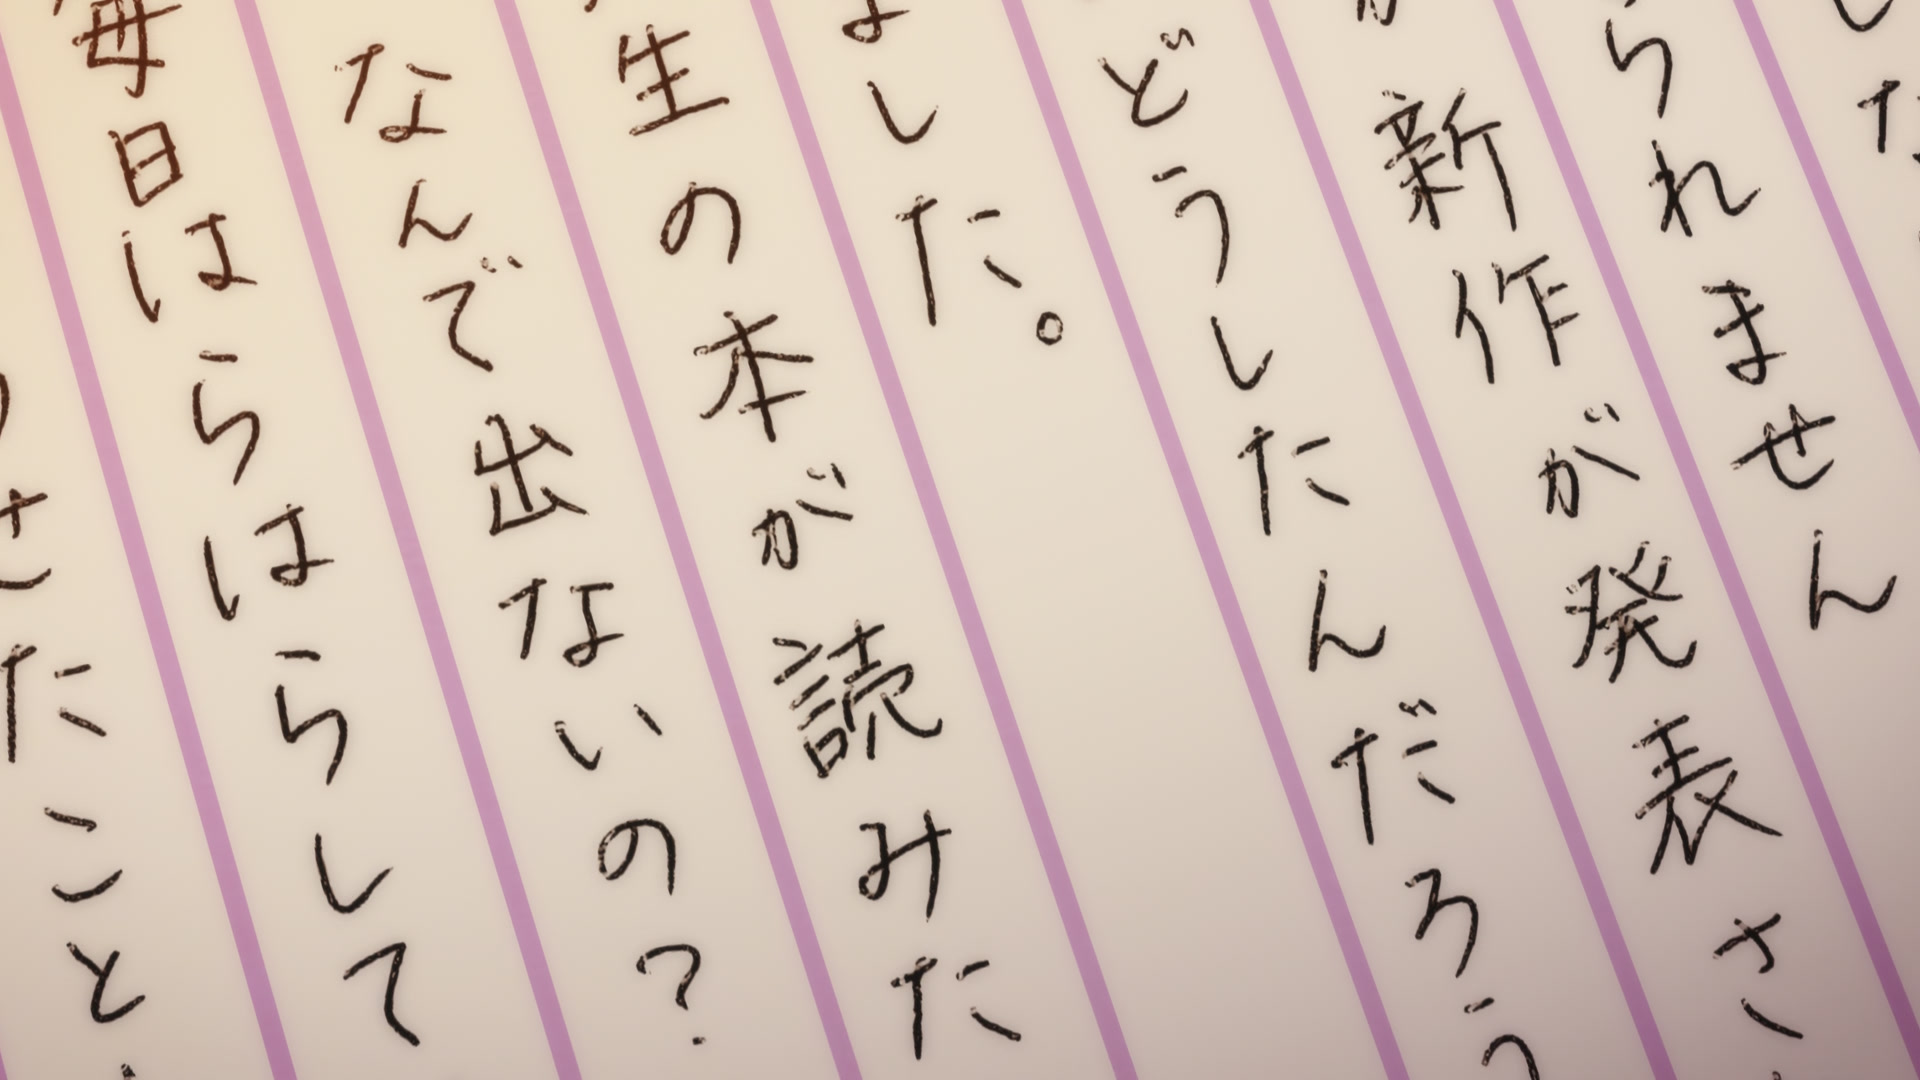 した
られません
が新作が発表さ
どうしたんだろう
ました。
生の本が読みた
なんで出ないの?
毎日はらはらして
せたこと